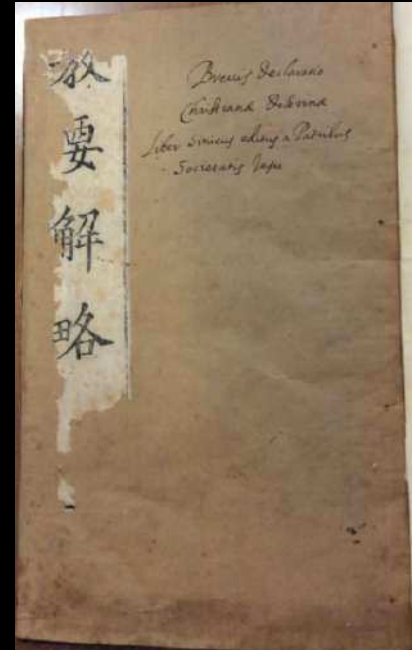 教要解略
Brevis Declaratio
Christianæ Doctrinæ
Liber Sinicus editus a Patribus
Societatis Iesu